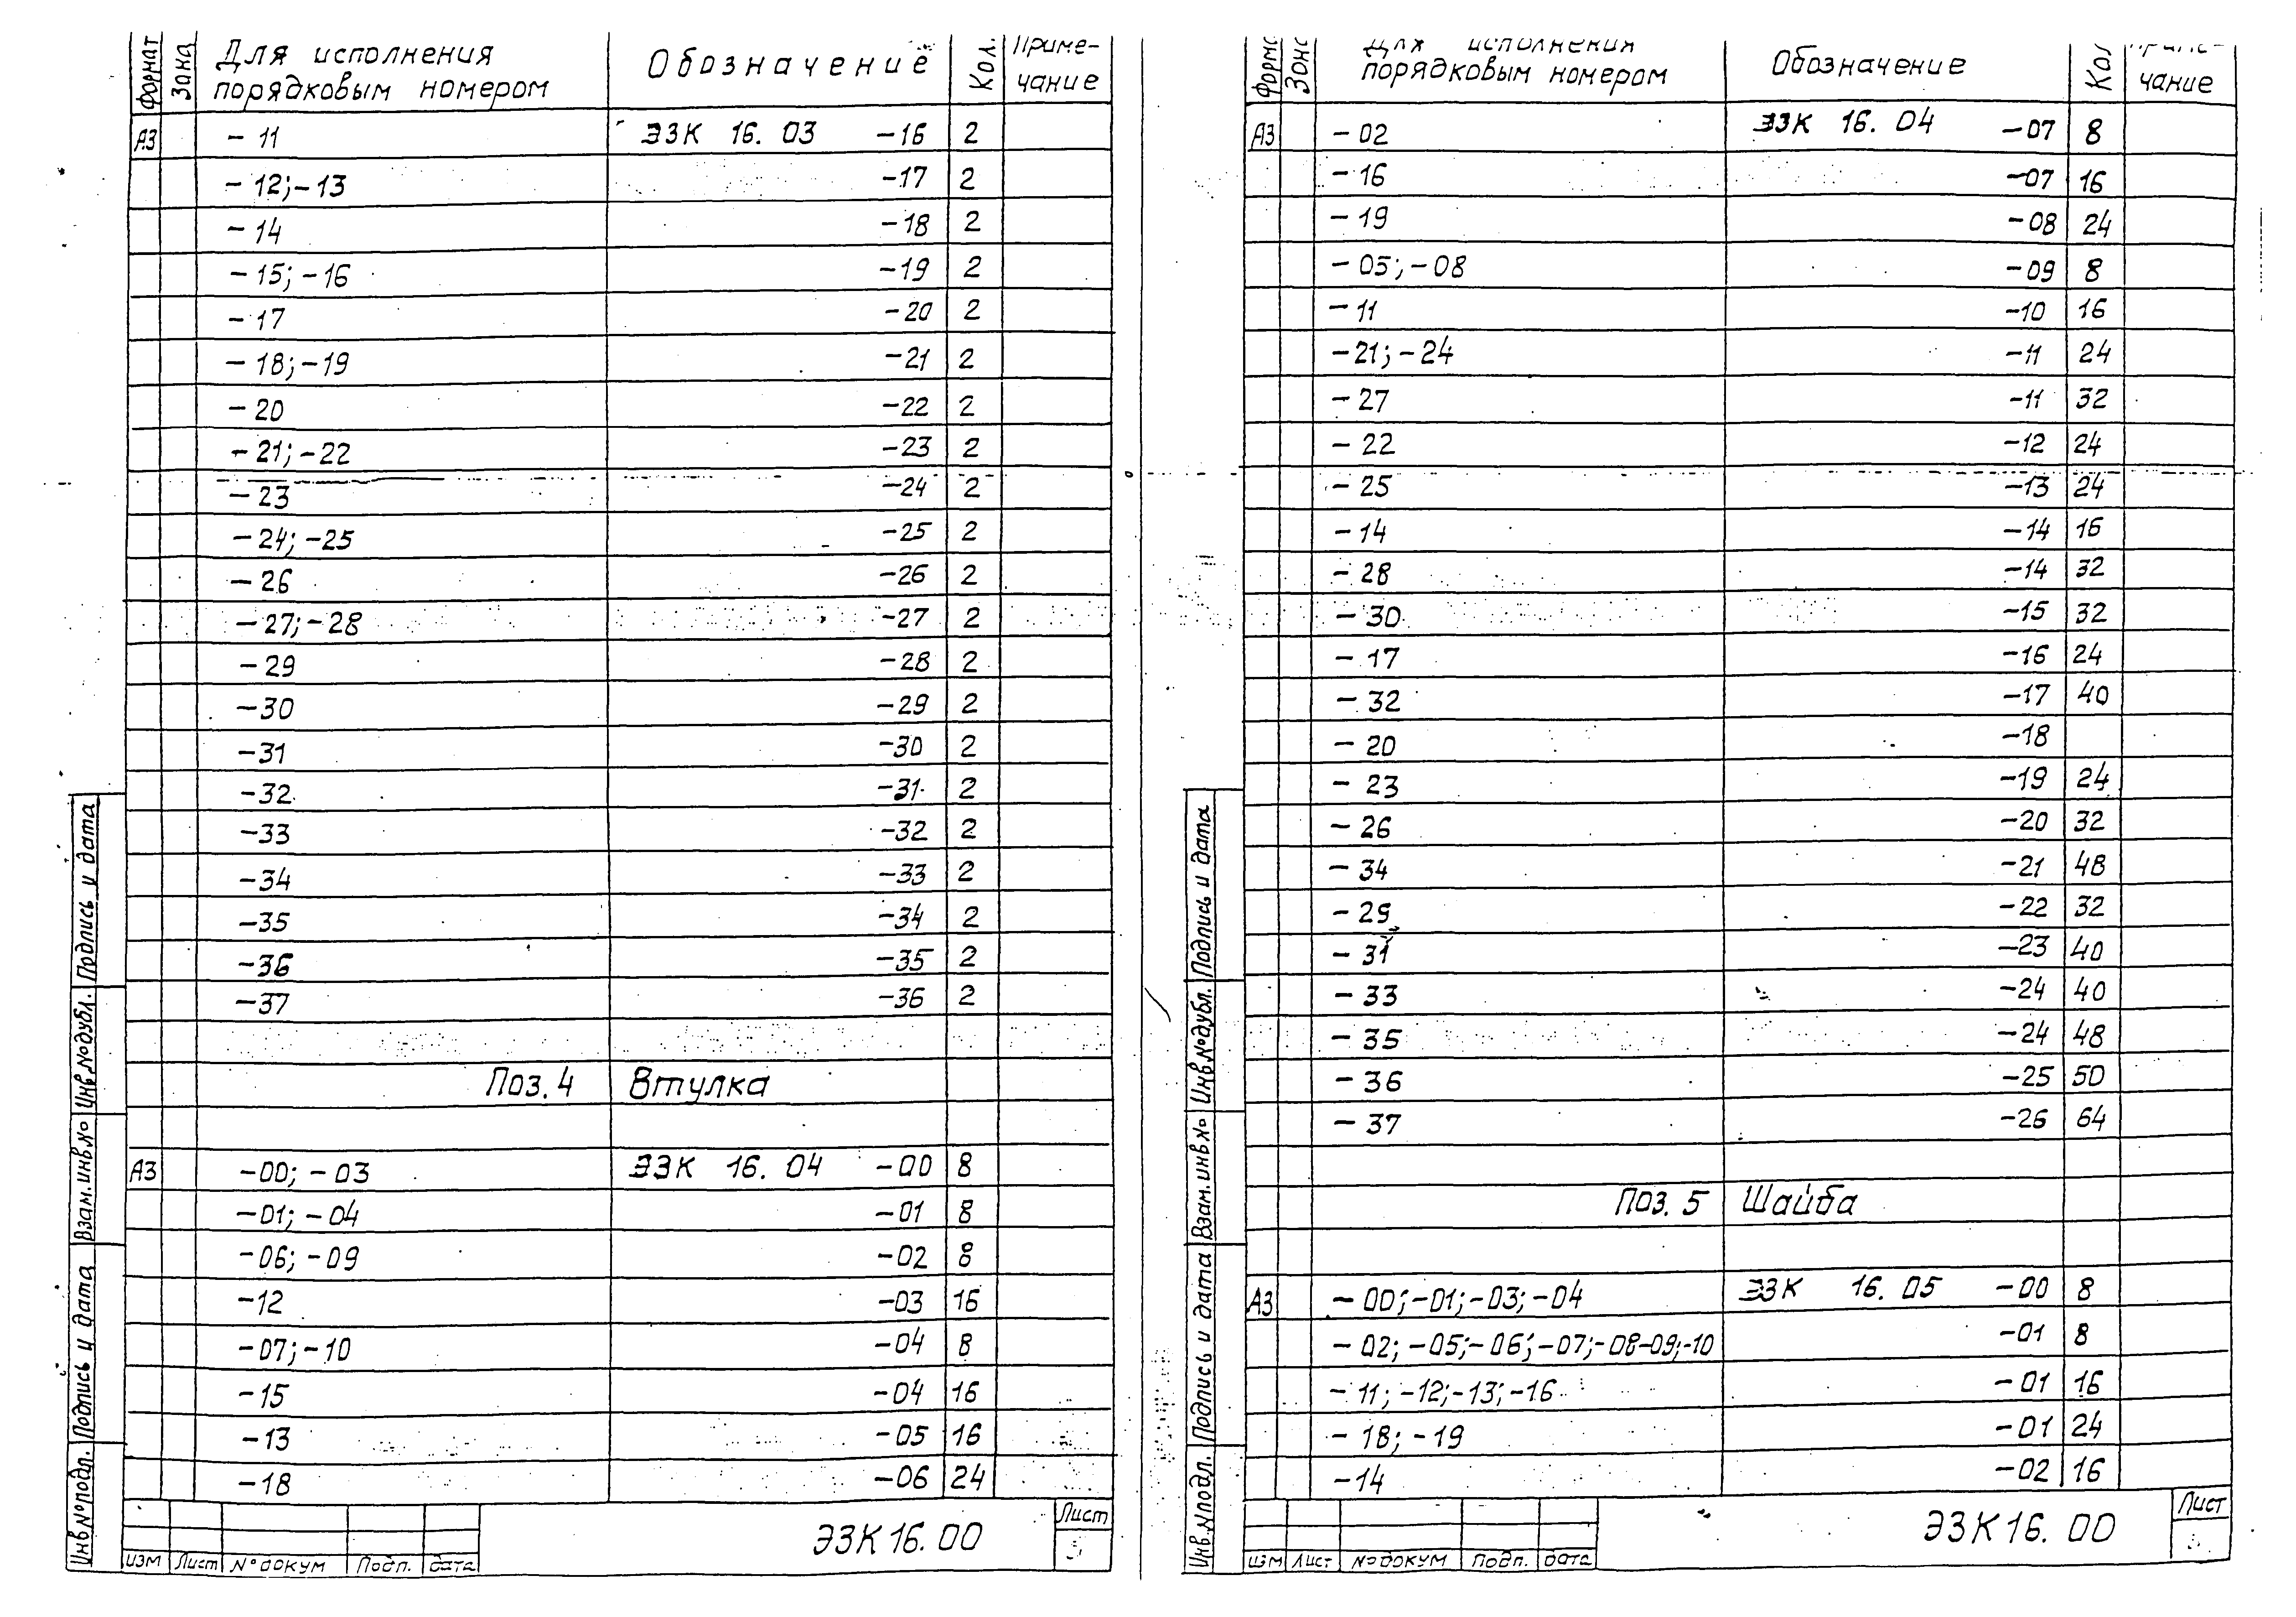 Формат Зона Для исполнения порядковым номером Обозначение Кол. Приме-чание
А3 - 11 ЭЗК 16. 03 -16 2
- 12; -13 -17 2
- 14 -18 2
- 15; -16 -19 2
- 17 -20 2
- 18; -19 -21 2
- 20 -22 2
- 21; -22 -23 2
- 23 -24 2
- 24; -25 -25 2
- 26 -26 2
- 27; -28 -27 2
- 29 -28 2
- 30 -29 2
- 31 -30 2
- 32 -31 2
- 33 -32 2
- 34 -33 2
- 35 -34 2
- 36 -35 2
- 37 -36 2
Поз. 4 Втулка
А3 -00; -03 ЭЗК 16. 04 -00 8
-01; -04 -01 8
-06; -09 -02 8
-12 -03 16
-07; -10 -04 8
-15 -04 16
-13 -05 16
-18 -06 24
Инв.№подл. Подпись и дата Взам.инв.№ Инв.№дубл. Подпись и дата
изм Лист №докум Подп. дата
ЭЗК 16. 00
Лист
Зона Для исполнения порядковым номером Обозначение Кол чание
А3 - 02 ЭЗК 16. 04 -07 8
- 16 -07 16
- 19 -08 24
- 05; -08 -09 8
- 11 -10 16
- 21; -24 -11 24
- 27 -11 32
- 22 -12 24
- 25 -13 24
- 14 -14 16
- 28 -14 32
- 30 -15 32
- 17 -16 24
- 32 -17 40
- 20 -18
- 23 -19 24
- 26 -20 32
- 34 -21 48
- 29 -22 32
- 31 -23 40
- 33 -24 40
- 35 -24 48
- 36 -25 50
- 37 -26 64
Поз. 5 Шайба
А3 - 00; -01; -03; -04 ЭЗК 16. 05 -00 8
- 02; -05; -06; -07; -08-09; -10 -01 8
- 11; -12; -13; -16 -01 16
- 18; -19 -01 24
-14 -02 16
Инв.№подл. Подпись и дата Взам.инв.№ Инв.№дубл. Подпись и дата
изм Лист №докум Подп. дата
ЭЗК 16. 00
Лист